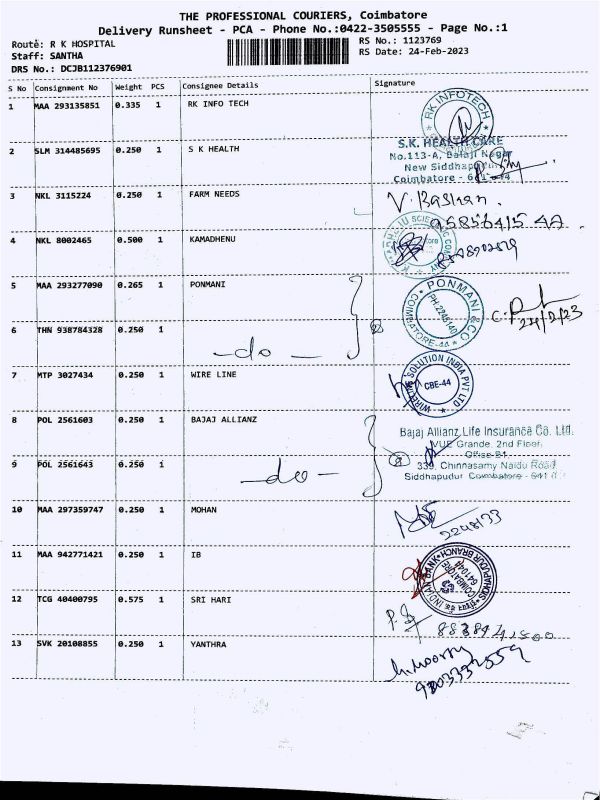 THE PROFESSIONAL COURIERS, Coimbatore
Delivery Runsheet - PCA - Phone No.:0422-3505555 - Page No.:1
Route: R K HOSPITAL RS No.: 1123769
Staff: SANTHA RS Date: 24-Feb-2023
DRS No.: DCJB112376901
S No Consignment No Weight PCS Consignee Details Signature
1 MAA 293135851 0.335 1 RK INFO TECH
RK INFOTECH
2 SLM 314485695 0.250 1 S K HEALTH
S.K. HEALTH CARE
No.113-A, Balaji Nagar
New Siddhapudur
Coimbatore - 641 044
3 NKL 3115224 0.250 1 FARM NEEDS
V. Baskaran.
4 NKL 8002465 0.500 1 KAMADHENU
5 MAA 293277090 0.265 1 PONMANI
PONMANI & CO
COIMBATORE-44
6 THN 938784328 0.250 1
-do-
7 MTP 3027434 0.250 1 WIRE LINE
WIRELINE SOLUTION INDIA PVT LTD
CBE-44
8 POL 2561603 0.250 1 BAJAJ ALLIANZ
Bajaj Allianz Life Insurance Co. Ltd.
VUE Grande, 2nd Floor,
339, Chinnasamy Naidu Road
Siddhapudur Coimbatore - 641
9 POL 2561643 0.250 1
-do-
10 MAA 297359747 0.250 1 MOHAN
11 MAA 942771421 0.250 1 IB
INDIAN BANK
SIDHAPUDUR BRANCH
COIMBATORE
641044
12 TCG 40400795 0.575 1 SRI HARI
13 SVK 20108855 0.250 1 YANTHRA